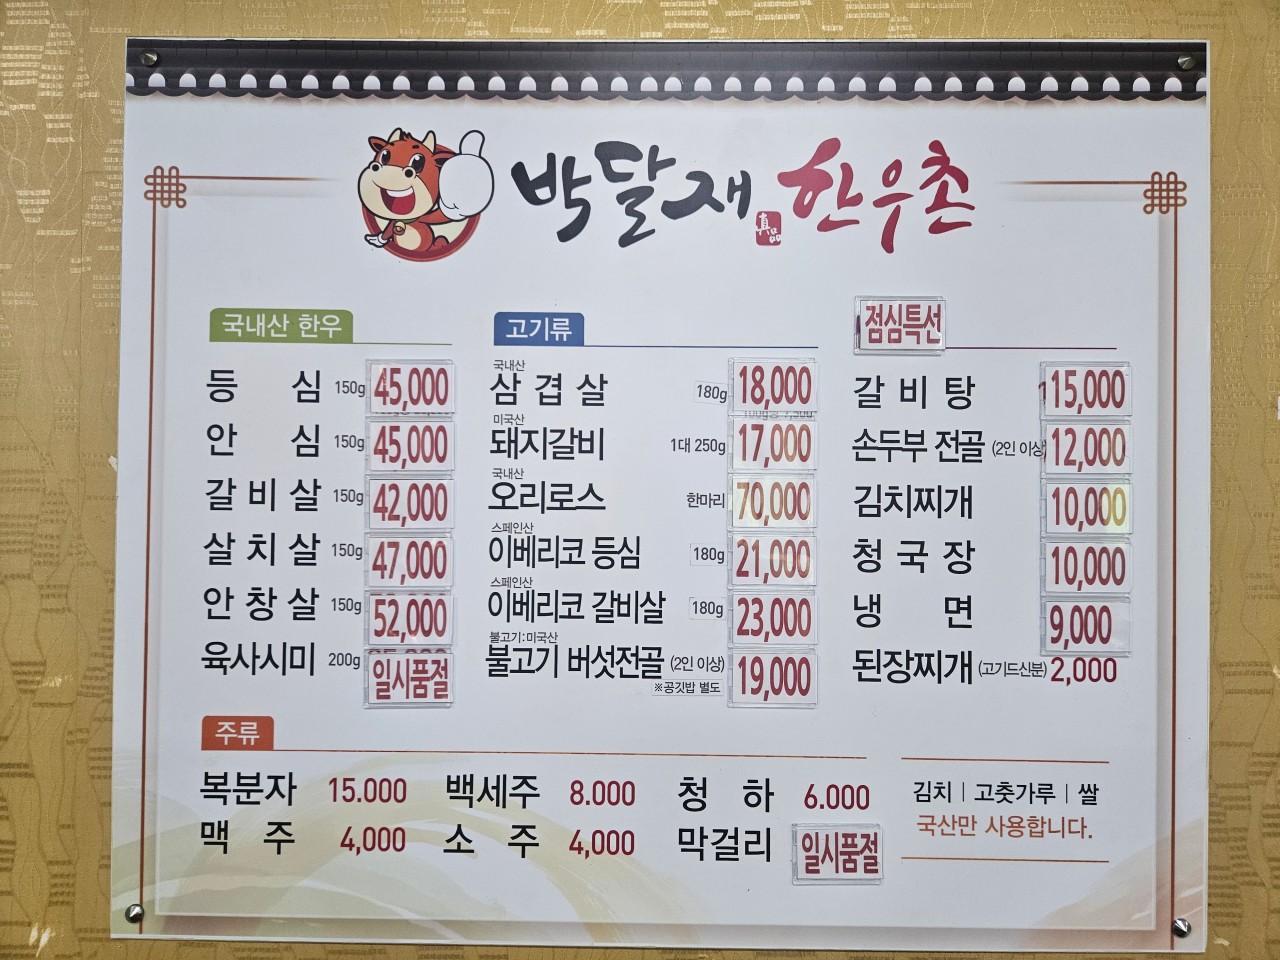 박달재 眞品 한우촌
국내산 한우
등 심 150g 45,000
안 심 150g 45,000
갈 비 살 150g 42,000
살 치 살 150g 47,000
안 창 살 150g 52,000
육사시미 200g 일시품절
고기류
국내산
삼 겹 살 180g 18,000
미국산
돼지갈비 1대 250g 17,000
국내산
오리로스 한마리 70,000
스페인산
이베리코 등심 180g 21,000
스페인산
이베리코 갈비살 180g 23,000
불고기:미국산
불고기 버섯전골 (2인 이상) 19,000
※공깃밥 별도
점심특선
갈 비 탕 15,000
손두부 전골 (2인 이상) 12,000
김치찌개 10,000
청 국 장 10,000
냉 면 9,000
된장찌개 (고기드신분) 2,000
주류
복분자 15.000 백세주 8.000 청 하 6.000
맥 주 4,000 소 주 4,000 막걸리 일시품절
김치 | 고춧가루 | 쌀
국산만 사용합니다.